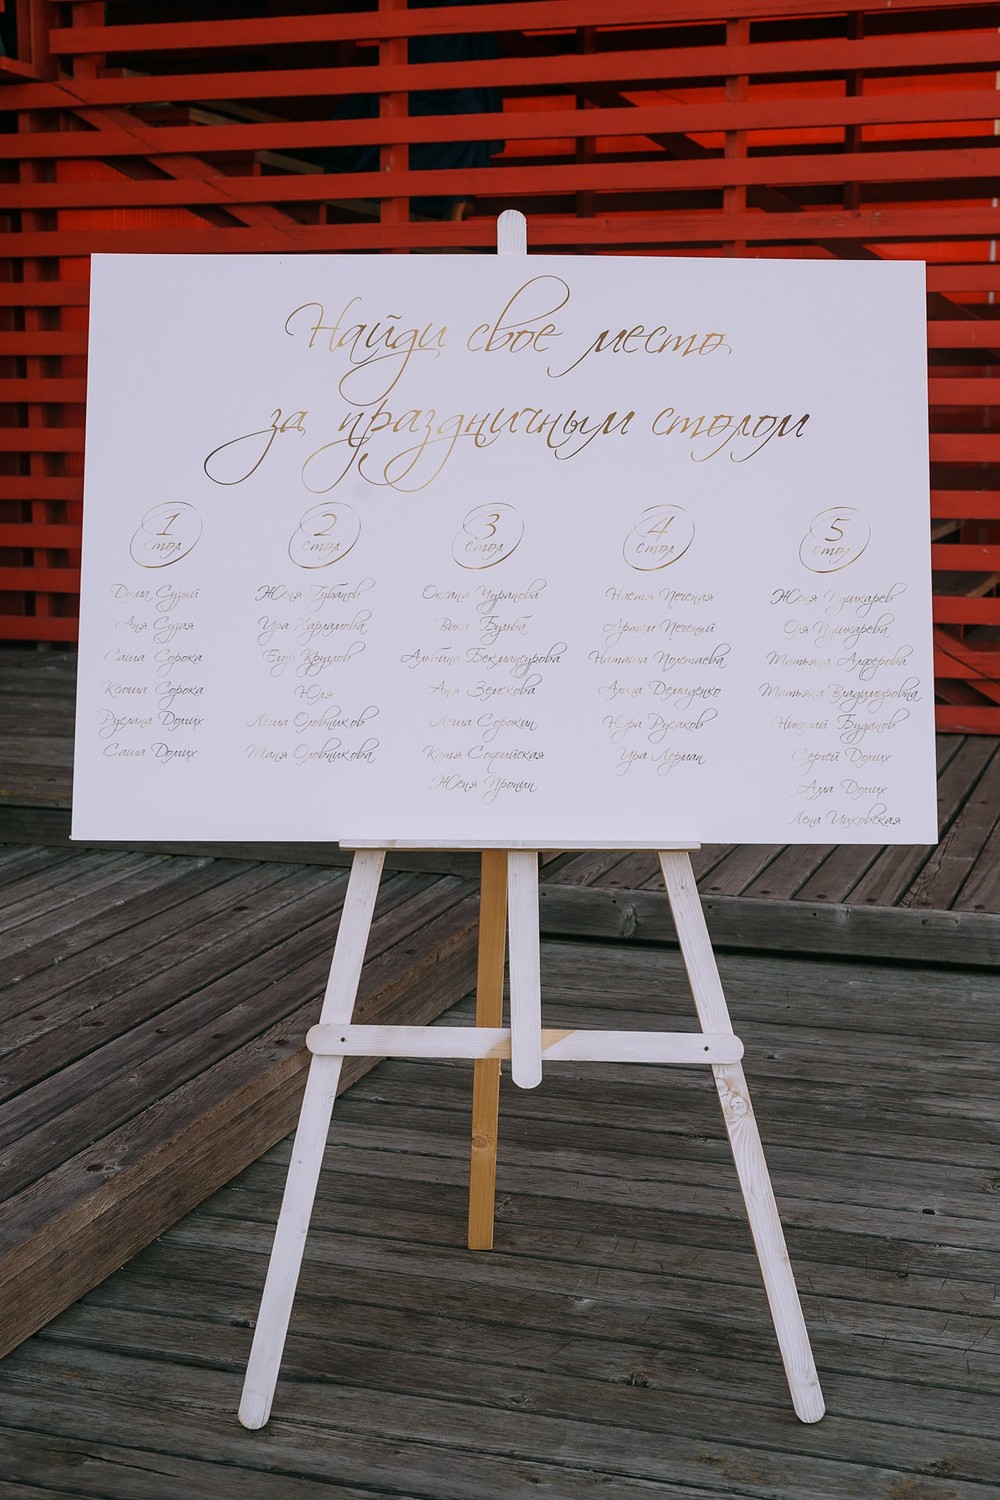 Найди свое место
за праздничным столом
1
стол
Дима Сузый
Аня Сузая
Саша Сорока
Ксюша Сорока
Руслана Долих
Саша Долих
2
стол
Женя Губанов
Ира Харламова
Егор Круглов
Юля
Леша Оловников
Таня Оловникова
3
стол
Оксана Чурапова
Вика Бульба
Альбина Бекмансурова
Аня Земскова
Леша Сорокин
Катя Софийская
Женя Пронин
4
стол
Настя Печеная
Артем Печеный
Наташа Полетаева
Алина Демиденко
Юра Русаков
Ира Лерман
5
стол
Женя Пушкарев
Оля Пушкарева
Татьяна Алферова
Татьяна Владимировна
Николай Буданов
Сергей Долих
Алла Долих
Лена Ицковская